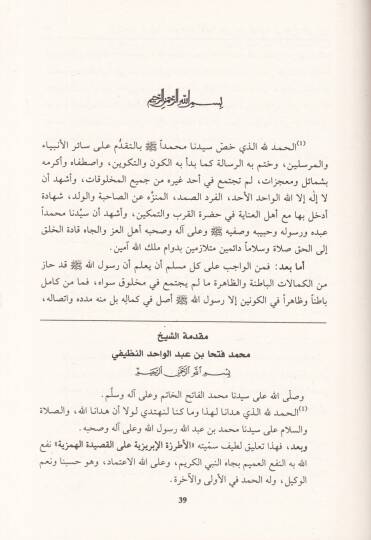 بسم الله الرحمن الرحيم
(1)الحمد لله الذي خصّ سيدنا محمداً ﷺ بالتقدُّم على سائر الأنبياء
والمرسلين، وختم به الرسالة كما بدأ به الكون والتكوين، واصطفاه وأكرمه
بشمائل ومعجزات، لم تجتمع في أحد غيره من جميع المخلوقات، وأشهد أن
لا إله إلا الله الواحد الأحد، الفرد الصمد، المنزَّه عن الصاحبة والولد، شهادة
أدخل بها مع أهل العناية في حضرة القرب والتمكين، وأشهد أن سيِّدنا محمداً
عبده ورسوله وحبيبه وصفيه ﷺ وعلى آله وصحبه أهل العز والجاه قادة الخلق
إلى الحق صلاة وسلاماً دائمين متلازمين بدوام ملك الله آمين.
أما بعد: فمن الواجب على كل مسلم أن يعلم أن رسول الله ﷺ قد حاز
من الكمالات الباطنة والظاهرة ما لم يجتمع في مخلوق سواه، فما من كامل
باطناً وظاهراً في الكونين إلا رسول الله ﷺ أصل في كماله بل منه مدده واتصاله،
مقدمة الشيخ
محمد فتحا بن عبد الواحد النظيفي
بسم الله الرحمن الرحيم
وصلّى الله على سيدنا محمد الفاتح الخاتم وعلى آله وسلّم.
(1)الحمد لله الذي هدانا لهذا وما كنا لنهتدي لولا أن هدانا الله، والصلاة
والسلام على سيدنا محمد بن عبد الله رسول الله وعلى آله وصحبه.
وبعد، فهذا تعليق لطيف سمّيته «الأطرزة الإبريزية على القصيدة الهمزية» نفع
الله به النفع العميم بجاه النبي الكريم، وعلى الله الاعتماد، وهو حسبنا ونعم
الوكيل، وله الحمد في الأولى والآخرة.
39